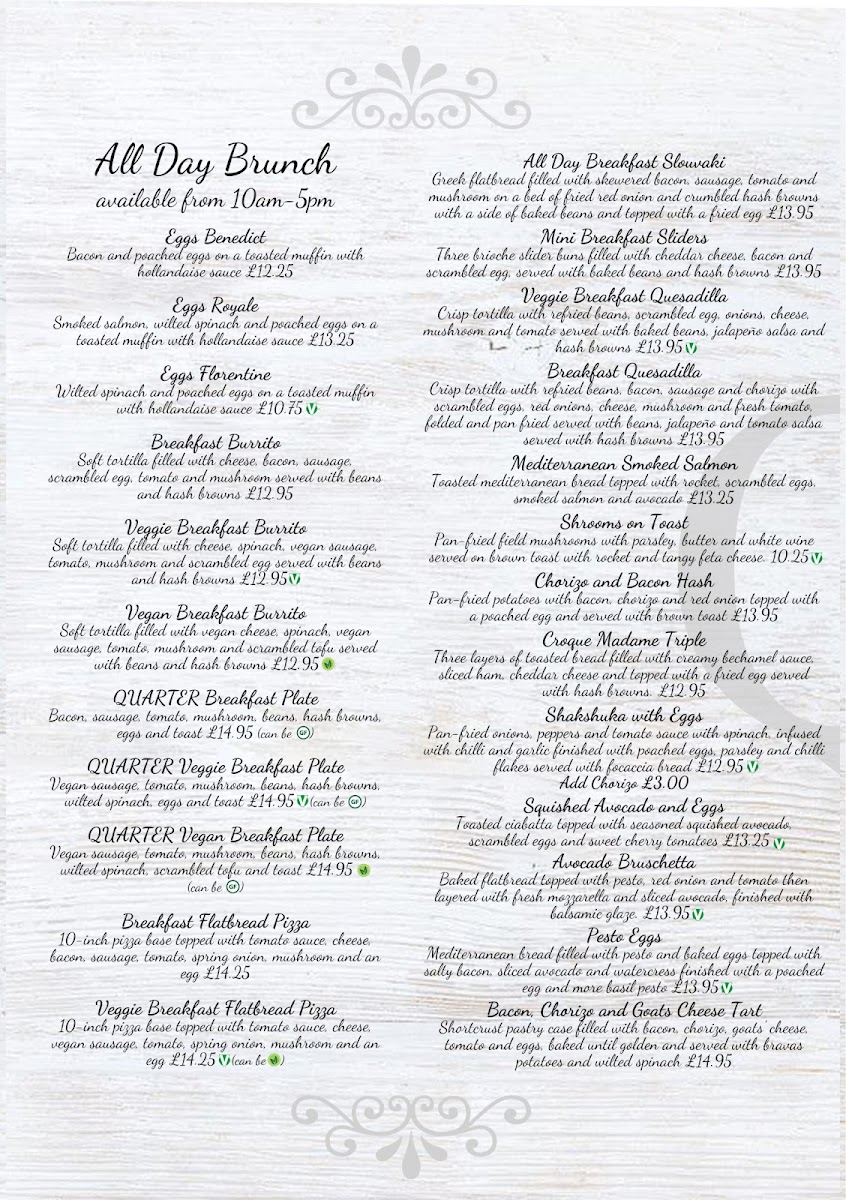 All Day Brunch
available from 10am-5pm
Eggs Benedict
Bacon and poached eggs on a toasted muffin with
hollandaise sauce £12.25
Eggs Royale
Smoked salmon, wilted spinach and poached eggs on a
toasted muffin with hollandaise sauce £13.25
Eggs Florentine
Wilted spinach and poached eggs on a toasted muffin
with hollandaise sauce £10.75 V
Breakfast Burrito
Soft tortilla filled with cheese, bacon, sausage,
scrambled egg, tomato and mushroom served with beans
and hash browns £12.95
Veggie Breakfast Burrito
Soft tortilla filled with cheese, spinach, vegan sausage,
tomato, mushroom and scrambled egg served with beans
and hash browns £12.95 V
Vegan Breakfast Burrito
Soft tortilla filled with vegan cheese, spinach, vegan
sausage, tomato, mushroom and scrambled tofu served
with beans and hash browns £12.95
QUARTER Breakfast Plate
Bacon, sausage, tomato, mushroom, beans, hash browns,
eggs and toast £14.95 (can be GF)
QUARTER Veggie Breakfast Plate
Vegan sausage, tomato, mushroom, beans, hash browns,
wilted spinach, eggs and toast £14.95 V (can be GF)
QUARTER Vegan Breakfast Plate
Vegan sausage, tomato, mushroom, beans, hash browns,
wilted spinach, scrambled tofu and toast £14.95
(can be GF)
Breakfast Flatbread Pizza
10-inch pizza base topped with tomato sauce, cheese,
bacon, sausage, tomato, spring onion, mushroom and an
egg £14.25
Veggie Breakfast Flatbread Pizza
10-inch pizza base topped with tomato sauce, cheese,
vegan sausage, tomato, spring onion, mushroom and an
egg £14.25 V (can be )
All Day Breakfast Slouvaki
Greek flatbread filled with skewered bacon, sausage, tomato and
mushroom on a bed of fried red onion and crumbled hash browns
with a side of baked beans and topped with a fried egg £13.95
Mini Breakfast Sliders
Three brioche slider buns filled with cheddar cheese, bacon and
scrambled egg, served with baked beans and hash browns £13.95
Veggie Breakfast Quesadilla
Crisp tortilla with refried beans, scrambled egg, onions, cheese,
mushroom and tomato served with baked beans, jalapeño salsa and
hash browns £13.95 V
Breakfast Quesadilla
Crisp tortilla with refried beans, bacon, sausage and chorizo with
scrambled eggs, red onions, cheese, mushroom and fresh tomato,
folded and pan fried served with beans, jalapeño and tomato salsa
served with hash browns £13.95
Mediterranean Smoked Salmon
Toasted mediterranean bread topped with rocket, scrambled eggs,
smoked salmon and avocado £13.25
Shrooms on Toast
Pan-fried field mushrooms with parsley, butter and white wine
served on brown toast with rocket and tangy feta cheese. 10.25 V
Chorizo and Bacon Hash
Pan-fried potatoes with bacon, chorizo and red onion topped with
a poached egg and served with brown toast £13.95
Croque Madame Triple
Three layers of toasted bread filled with creamy bechamel sauce,
sliced ham, cheddar cheese and topped with a fried egg served
with hash browns. £12.95
Shakshuka with Eggs
Pan-fried onions, peppers and tomato sauce with spinach, infused
with chilli and garlic finished with poached eggs, parsley and chilli
flakes served with focaccia bread £12.95 V
Add Chorizo £3.00
Squished Avocado and Eggs
Toasted ciabatta topped with seasoned squished avocado,
scrambled eggs and sweet cherry tomatoes £13.25 V
Avocado Bruschetta
Baked flatbread topped with pesto, red onion and tomato then
layered with fresh mozzarella and sliced avocado, finished with
balsamic glaze. £13.95 V
Pesto Eggs
Mediterranean bread filled with pesto and baked eggs topped with
salty bacon, sliced avocado and watercress finished with a poached
egg and more basil pesto £13.95 V
Bacon, Chorizo and Goats Cheese Tart
Shortcrust pastry case filled with bacon, chorizo, goats' cheese,
tomato and eggs, baked until golden and served with bravas
potatoes and wilted spinach £14.95